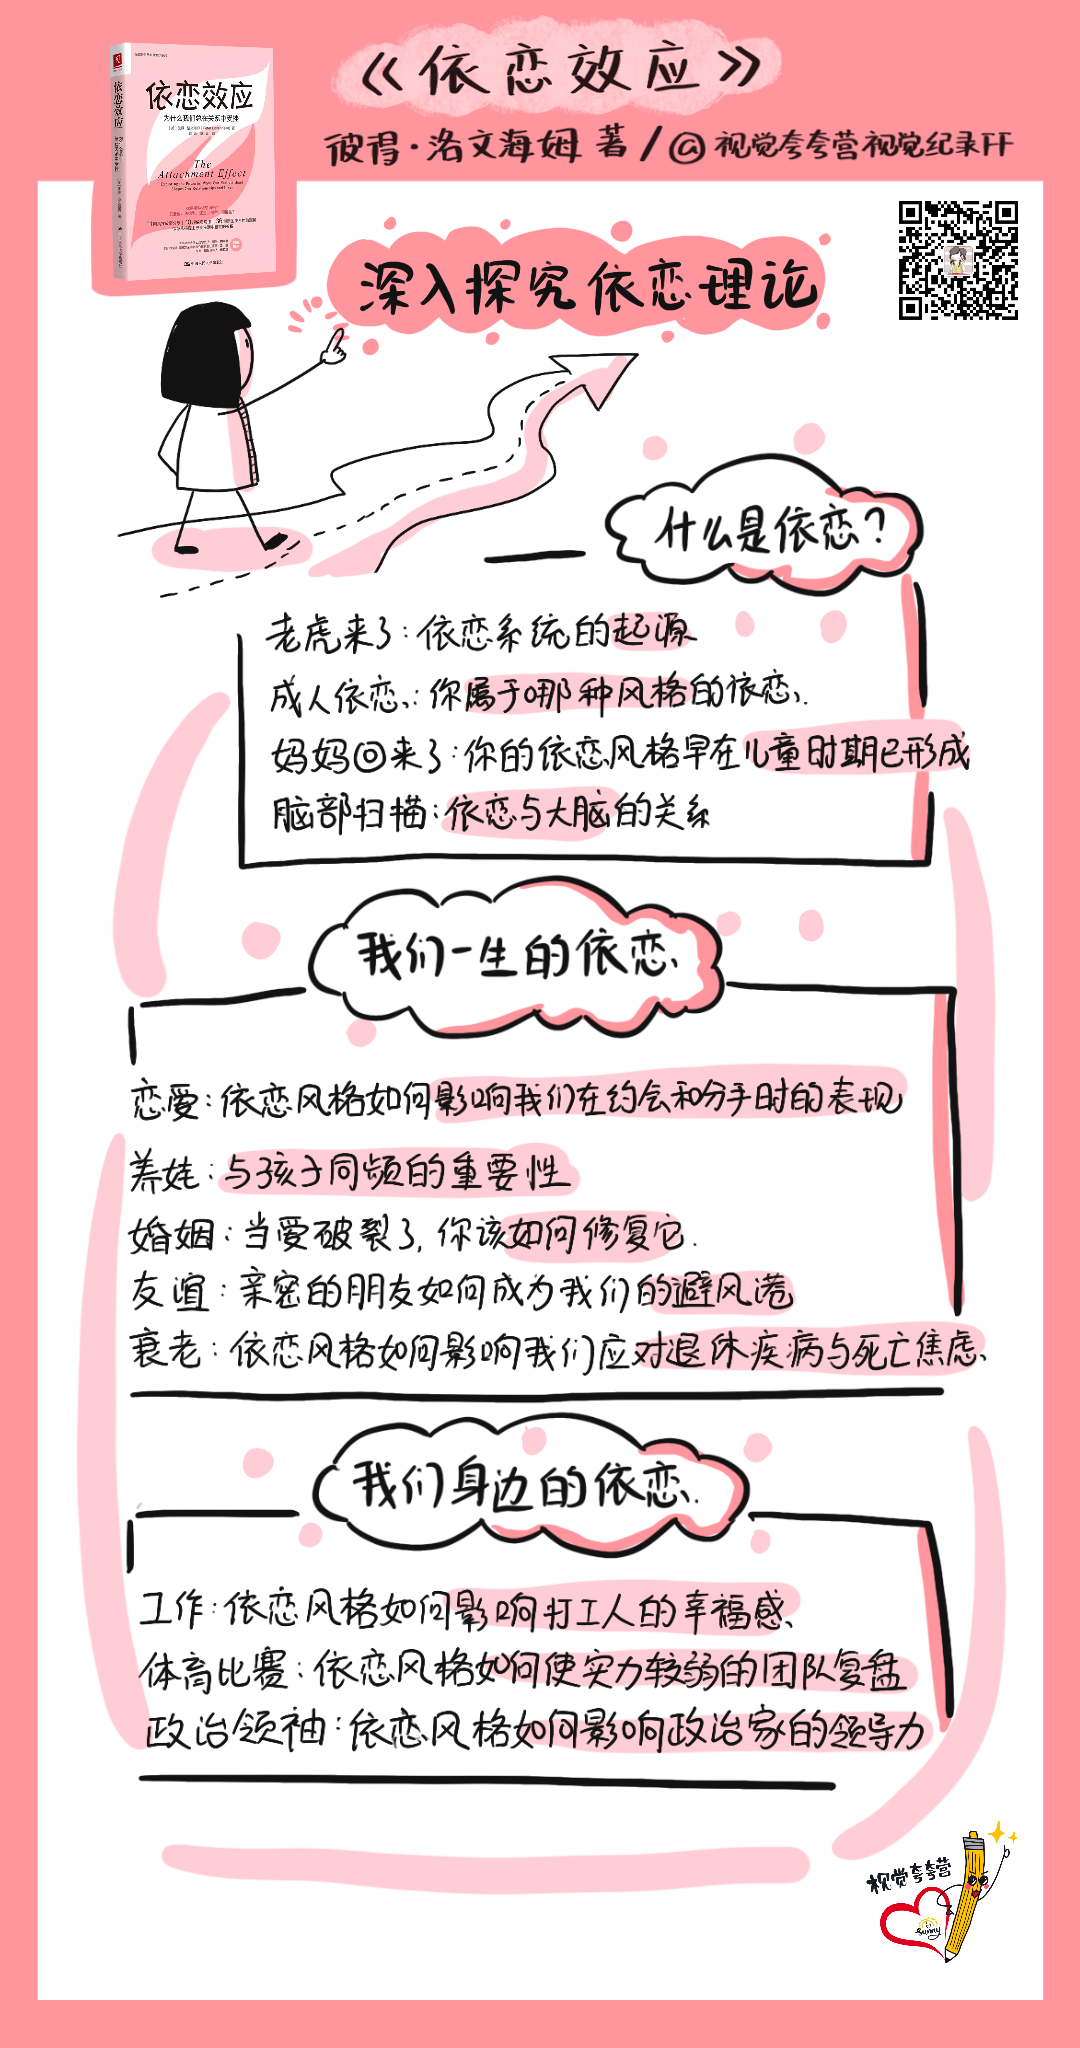 《依恋效应》
彼得·洛文海姆 著/@视觉夸夸营视觉纪录FF
依恋效应
为什么我们总在关系中受挫
The
Attachment Effect
依恋效应
深入探究依恋理论
什么是依恋？
老虎来了：依恋系统的起源
成人依恋：你属于哪种风格的依恋
妈妈回来了：你的依恋风格早在儿童时期已形成
脑部扫描：依恋与大脑的关系
我们一生的依恋
恋爱：依恋风格如何影响我们在约会和分手时的表现
养娃：与孩子同频的重要性
婚姻：当爱破裂了，你该如何修复它.
友谊：亲密的朋友如何成为我们的避风港
衰老：依恋风格如何影响我们应对退休疾病与死亡焦虑
我们身边的依恋
工作：依恋风格如何影响打工人的幸福感
体育比赛：依恋风格如何使实力较弱的团队复盘
政治领袖：依恋风格如何影响政治家的领导力
视觉夸夸营
Sunny